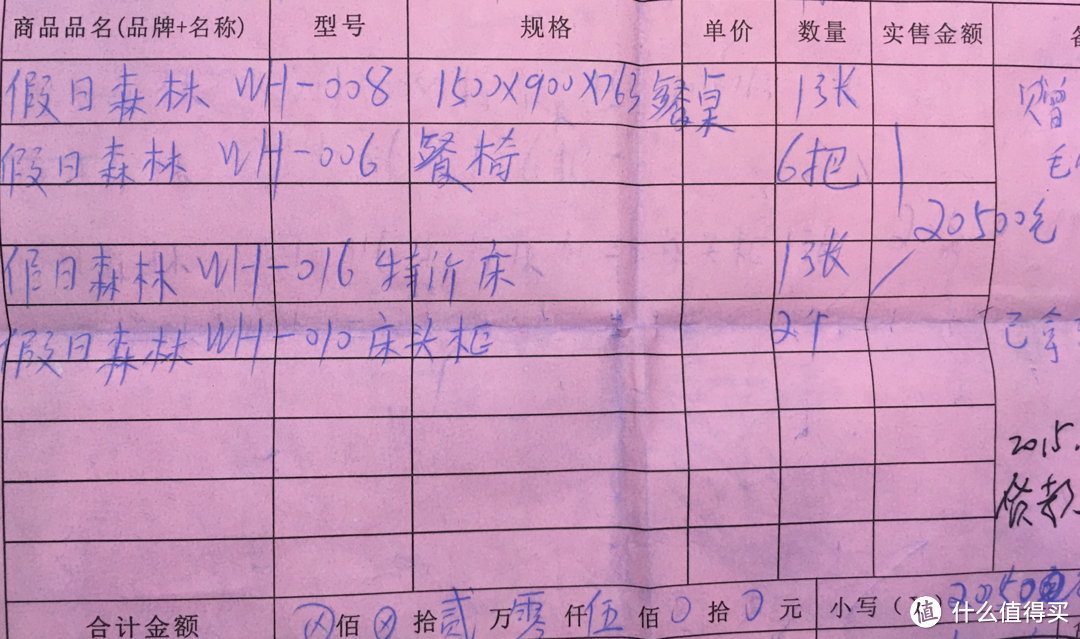 商品品名(品牌+名称) 型号 规格 单价 数量 实售金额
假日森林 WH-008 1500×900×763 餐桌 1张 赠
假日森林 WH-006 餐椅 6把
20500元
假日森林 WH-016 特价床 1张
假日森林 WH-010 床头柜 2个 已拿
2015.
货款
合计金额 佰 拾 贰 万 零 仟 伍 佰 0 拾 0 元 小写(
值 什么值得买